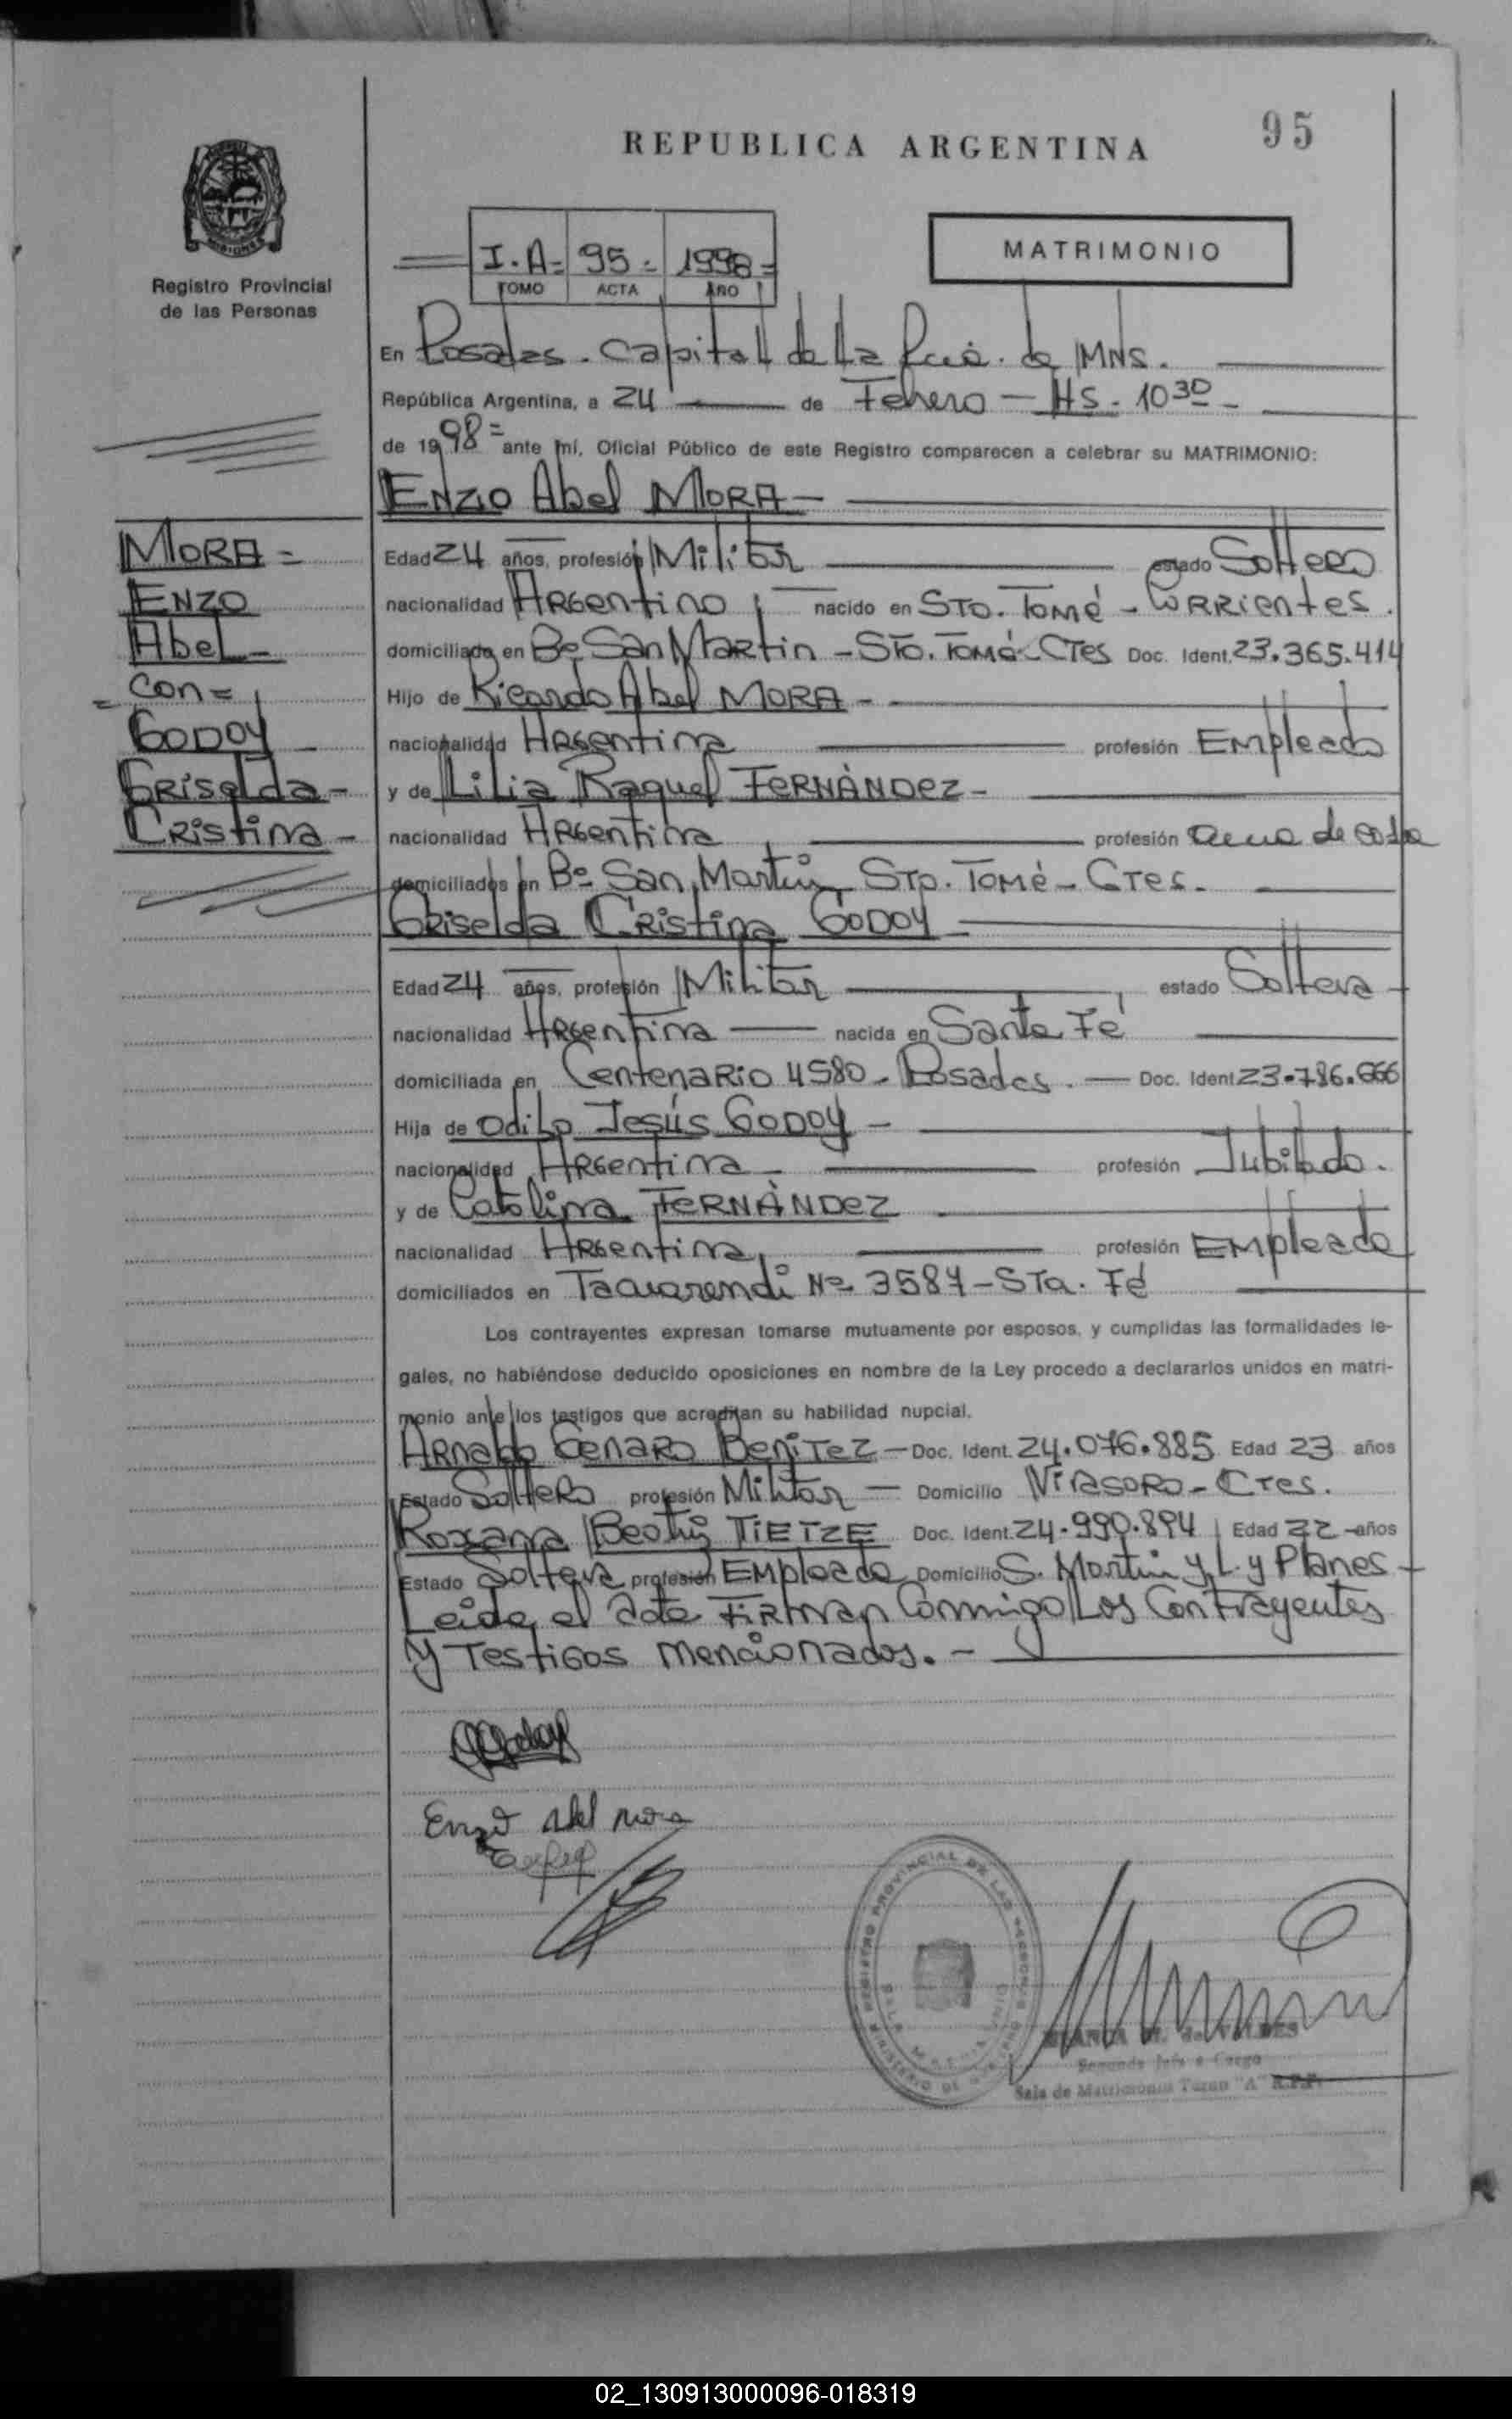 95
REPUBLICA ARGENTINA
Registro Provincial
de las Personas
I.A= 95= 1998=
TOMO ACTA AÑO
MATRIMONIO
En Posadas. Capital de la Pcia. de MNS.
República Argentina, a 24 de Febrero - HS. 10 30 -
de 1998= ante mí, Oficial Público de este Registro comparecen a celebrar su MATRIMONIO:
ENZO Abel MORA-
MORA=
ENZO
Abel-
= con =
GODOY
GRISelda-
CRistina-
Edad 24 años, profesión Militar estado Soltero
nacionalidad ARGentino, nacido en STO. Tomé - CORRientes.
domiciliado en Bº San Martin - STO. Tomé - CTes Doc. Ident. 23.365.414
Hijo de Ricardo Abel MORA-
nacionalidad ARGentina profesión EMpleado
y de Lilia Raquel FERNÁNDEZ-
nacionalidad ARGentina profesión ama de casa
domiciliados en Bº San Martin STO. Tomé - CTes.
GRiselda CRistina GODOY
Edad 24 años, profesión Militar estado Soltera
nacionalidad ARGentina nacida en Santa Fé
domiciliada en CentenaRio 4580 - Posadas. Doc. Ident 23.786.666
Hija de Odilo Jesús GODOY-
nacionalidad ARGentina - profesión Jubilado.
y de Catalina FERNÁNDEZ
nacionalidad ARGentina, profesión EMpleada
domiciliados en Tacuarendi Nº 3587 - STa. Fé
Los contrayentes expresan tomarse mutuamente por esposos, y cumplidas las formalidades le-
gales, no habiéndose deducido oposiciones en nombre de la Ley procedo a declararlos unidos en matri-
monio ante los testigos que acreditan su habilidad nupcial.
ARnaldo GenaRo BeniTeZ - Doc. Ident. 24.076.885 Edad 23 años
Estado Soltero profesión Militar - Domicilio ViRasoRo - CTes.
Roxana Beatriz TIETZE Doc. Ident. 24.990.894 Edad 22 años
Estado Soltera profesión EMpleada Domicilio S. Martin y L. y Planes -
Leida el acta FIRMan Conmigo Los ContRayentes
y TestiGos mencionados.-
Enzo Abel Mora
REGISTRO PROVINCIAL DE LAS PERSONAS
Segundo Jefe a Cargo
Sala de Matrimonios Turno "A" R.P.P.
02_130913000096-018319